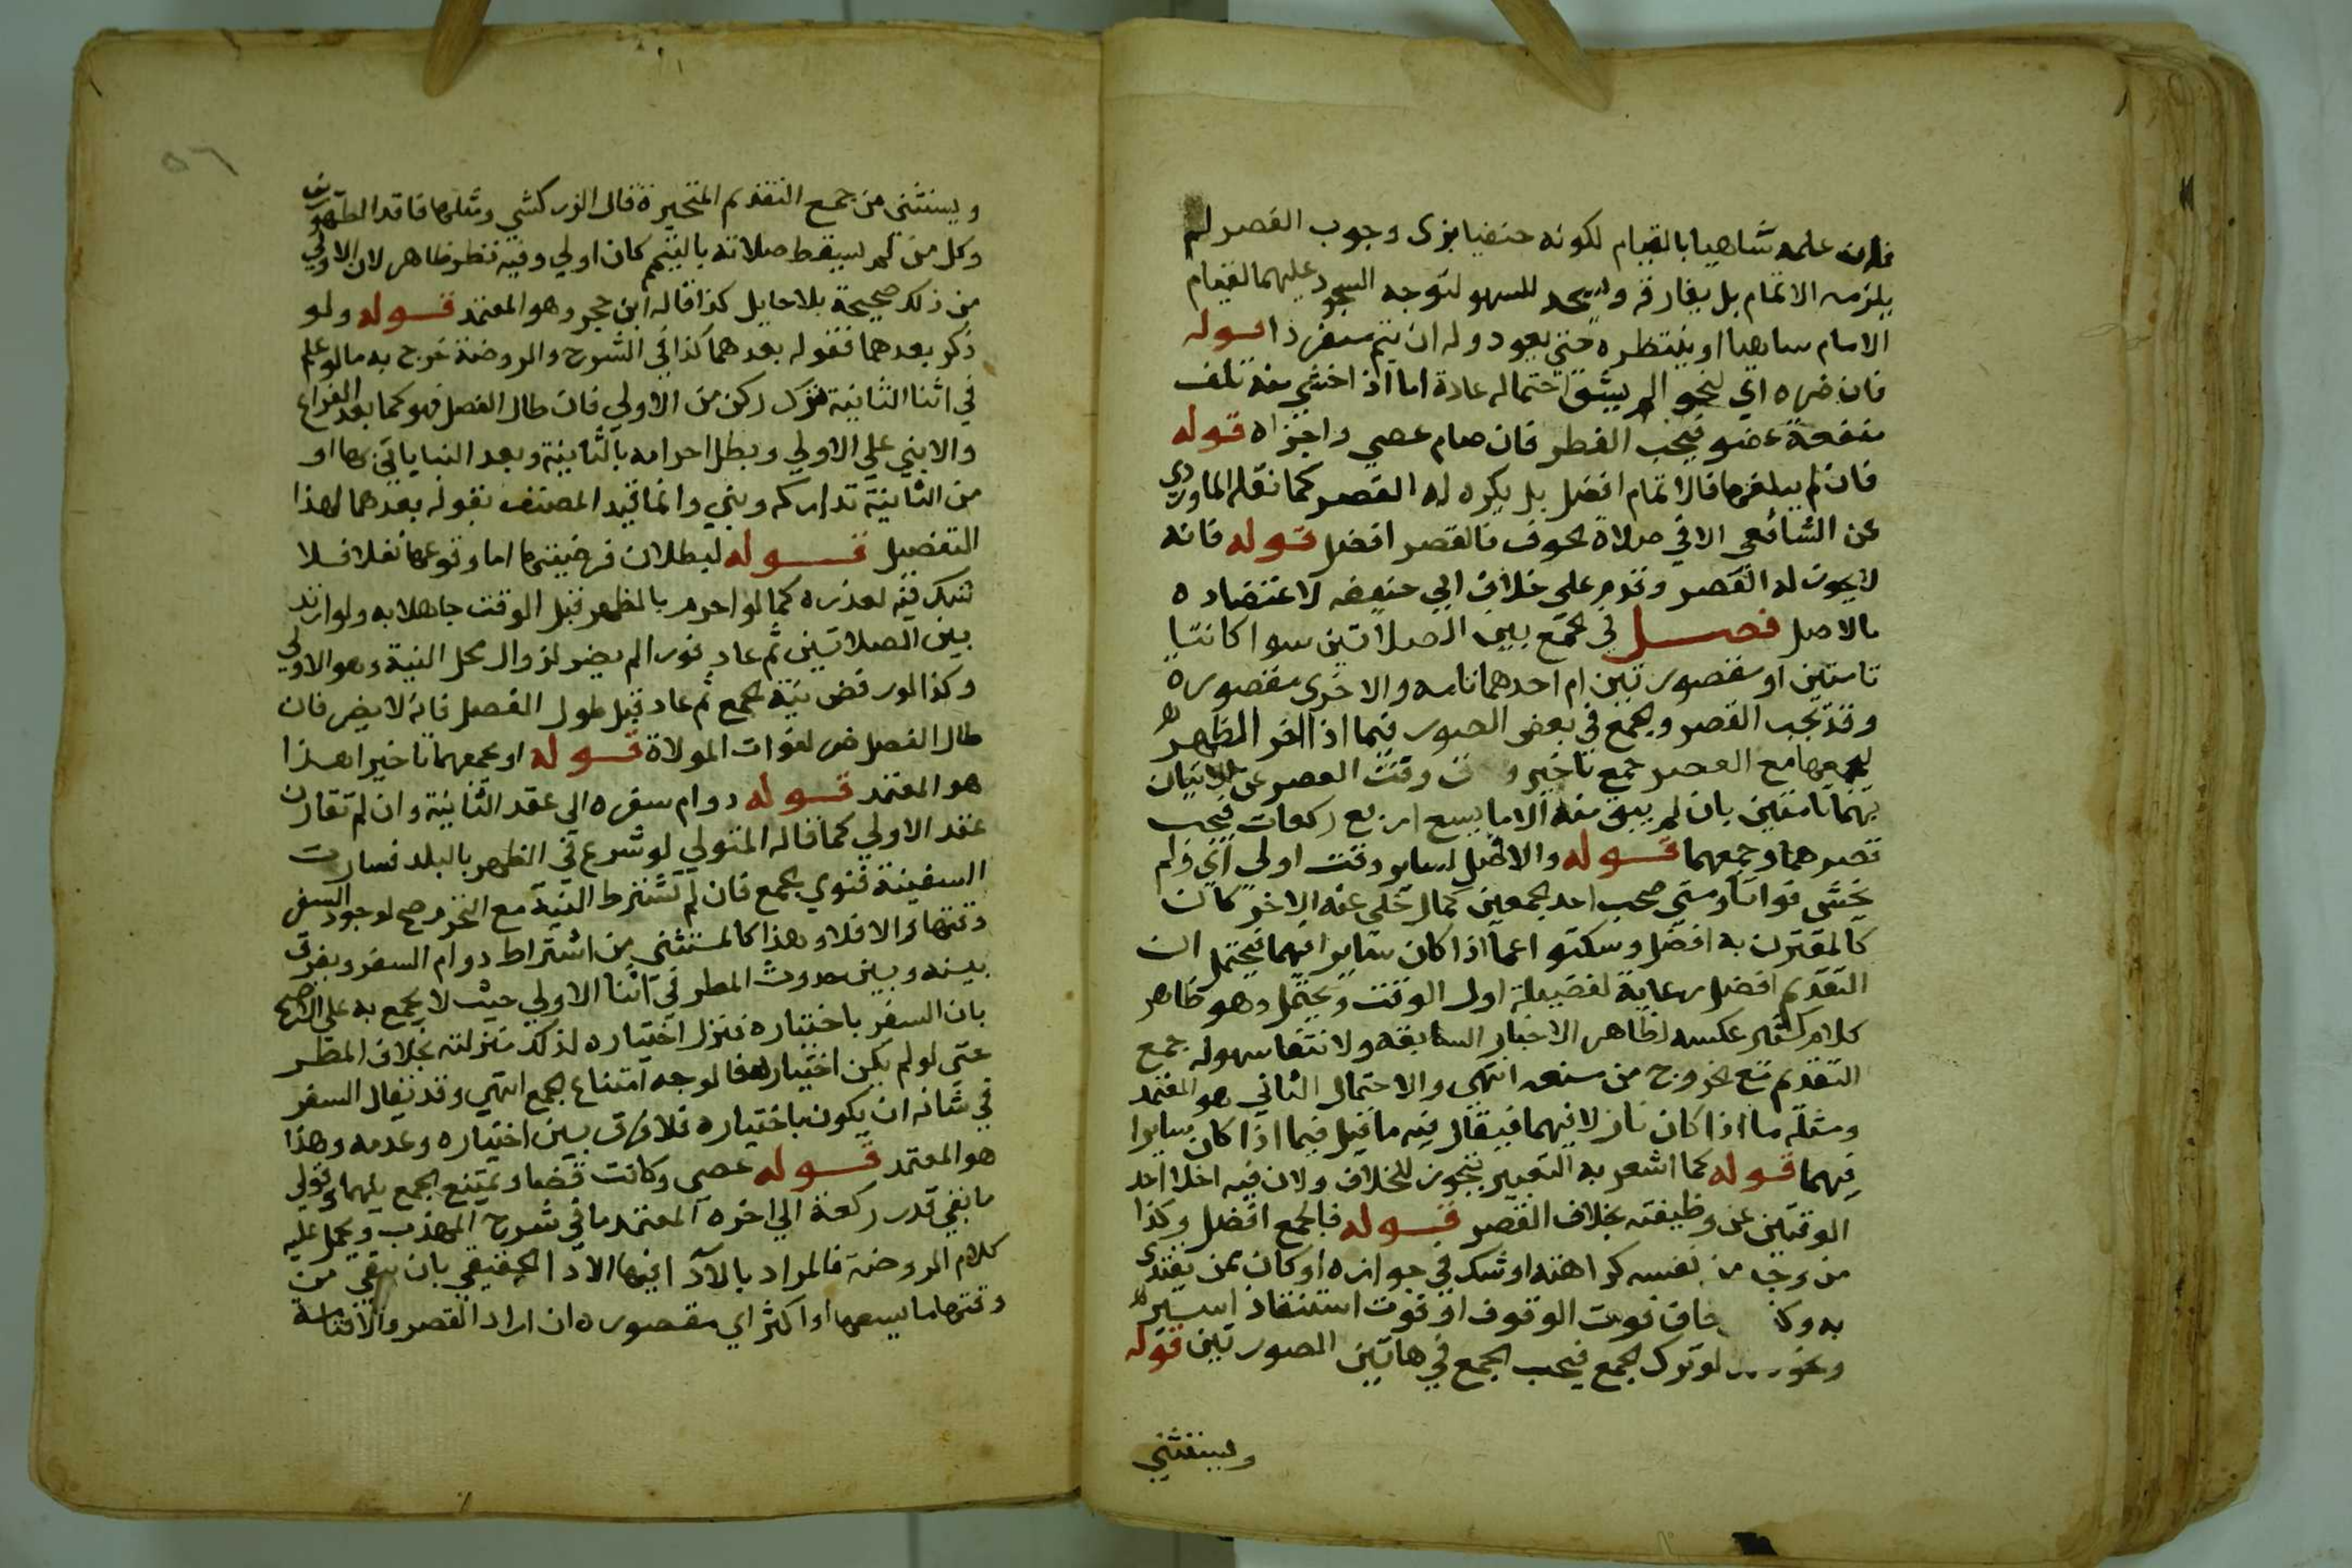 فان علمه ساهيا بالقيام لكونه حنفيا يرى وجوب القصر لم
يلزمه الاتمام بل يفارقه ويسجد للسهو لتوجه السجود عليهما لقيام
الامام ساهيا او ينتظره حتى يعود وله ان يتم منفردا قوله
فان ضره اي لنحو الم يشق احتماله عادة اما اذا خشي منه تلف
منفعة عضو فيجب الفطر فان صام عصي واجزاه قوله
فان لم يبلغها فالاتمام افضل بل يكره له القصر كما نقله الماوردي
عن الشافعي الا في صلاة الخوف فالقصر افضل قوله فانه
لا يجوز له القصر وقدم على خلاف ابي حنيفه لاعتضاده
بالاصل فصل في الجمع بين الصلاتين سوا كانتا
تامتين او مقصورتين ام احدهما تامه والاخرى مقصوره
وقد يجب القصر والجمع في بعض الصور فيما اذا اخر الظهر
ليجمعها مع العصر جمع تاخير وقت العصر عن الاتيان
بهما تامتين بان لم يبق منه الا ما يسع اربع ركعات فيجب
قصرهما وجمعهما قوله والافضل لساير وقت اولى اي ولم
يخش فواتا ومتى صحب احد الجمعين كمال خلي عنه الاخر كان
كالمقترن به افضل وسكتو اعما اذا كان سايرا فيهما فيحتمل ان
التقديم افضل رعاية لفضيلة اول الوقت ويحتمل وهو ظاهر
كلام عكسه لظاهر الاخبار السابقه ولانتفا سهوله جمع
التقديم مع الخروج من سنعه انتهى والاحتمال الثاني هو المعتمد
ومثله ما اذا كان نازلا فيهما فيقال فيه ما قيل فيما اذا كان سايرا
فيهما قوله كما اشعر به التعبير بتجوز للخلاف ولان فيه اخلا احد
الوقتين عن وظيفته بخلاف القصر قوله فالجمع افضل وكذا
من وجد من نفسه كراهته او شك في جوازه او كان ممن يقتدى
به وكذا خاف فوت الوقوف او فوت استنقاذ اسير
لو ترك الجمع فيجب الجمع في هاتين الصورتين قوله
ويستثني
٥٦
ويستثني من جمع التقديم المتحيرة قال الزركشي ومثلها فاقد الطهورين
وكل من لم يسقط صلاته بالتيمم كان اولي وفيه نظر ظاهر لان الاولي
من ذلك صحيحة بلا حايل كذا قاله ابن حجر وهو المعتمد قوله ولو
ذكر بعدهما فقوله بعدهما كذا في الشرح والروضة خرج به مالو علم
في اثنا الثانية بترك ركن من الاولي فان طال الفصل فهو كما بعد الفراغ
والا بني علي الاولي وبطل احرامه بالثانية وبعد البنا ياتي بها او
من الثانية تداركه وبني وانما قيد المصنف بقوله بعدهما لهذا
التفصيل قوله لبطلان فرضيتها اما وقوعها نفلا فلا
شك فيه لعذره كما لو احرم بالظهر قبل الوقت جاهلا به ولو ارتد
بين الصلاتين ثم عاد فورا لم يضر لزوال محل النية وهو الاولي
وكذا لو رفض نية الجمع ثم عاد قبل طول الفصل فانه لا يضر فان
طال الفصل ضر لفوات المولاة قوله او يجمعهما تاخيرا هذا
هو المعتمد قوله دوام سفره الي عقد الثانية وان لم تقارن
عقد الاولي كما قاله المتولي لو شرع في الظهر بالبلد فسارت
السفينة فنوي الجمع فان لم تشترط النية مع التحرم صح لوجود السفر
وقتها والا فلا وهذا كالمستثني من اشتراط دوام السفر ويفرق
بينه وبين حدوث المطر في اثنا الاولي حيث لا يجمع به علي الراجح
بان السفر باختياره فنزل اختياره لذلك منزلته بخلاف المطر
حتى لو لم يكن اختياره فالوجه امتناع الجمع انتهي وقد يقال السفر
في شانه ان يكون باختياره فلا فرق بين اختياره وعدمه وهذا
هو المعتمد قوله عصى وكانت قضا ويمتنع الجمع بينهما وقولي
ما بقي قدر ركعة الي اخره المعتمد ما في شرح المهذب ويحمل عليه
كلام الروضة فالمراد بالادا فيها الادا الحقيقي بان يبقي من
وقتها ما يسعها او اكثر اي مقصوره ان اراد القصر والا فتامة